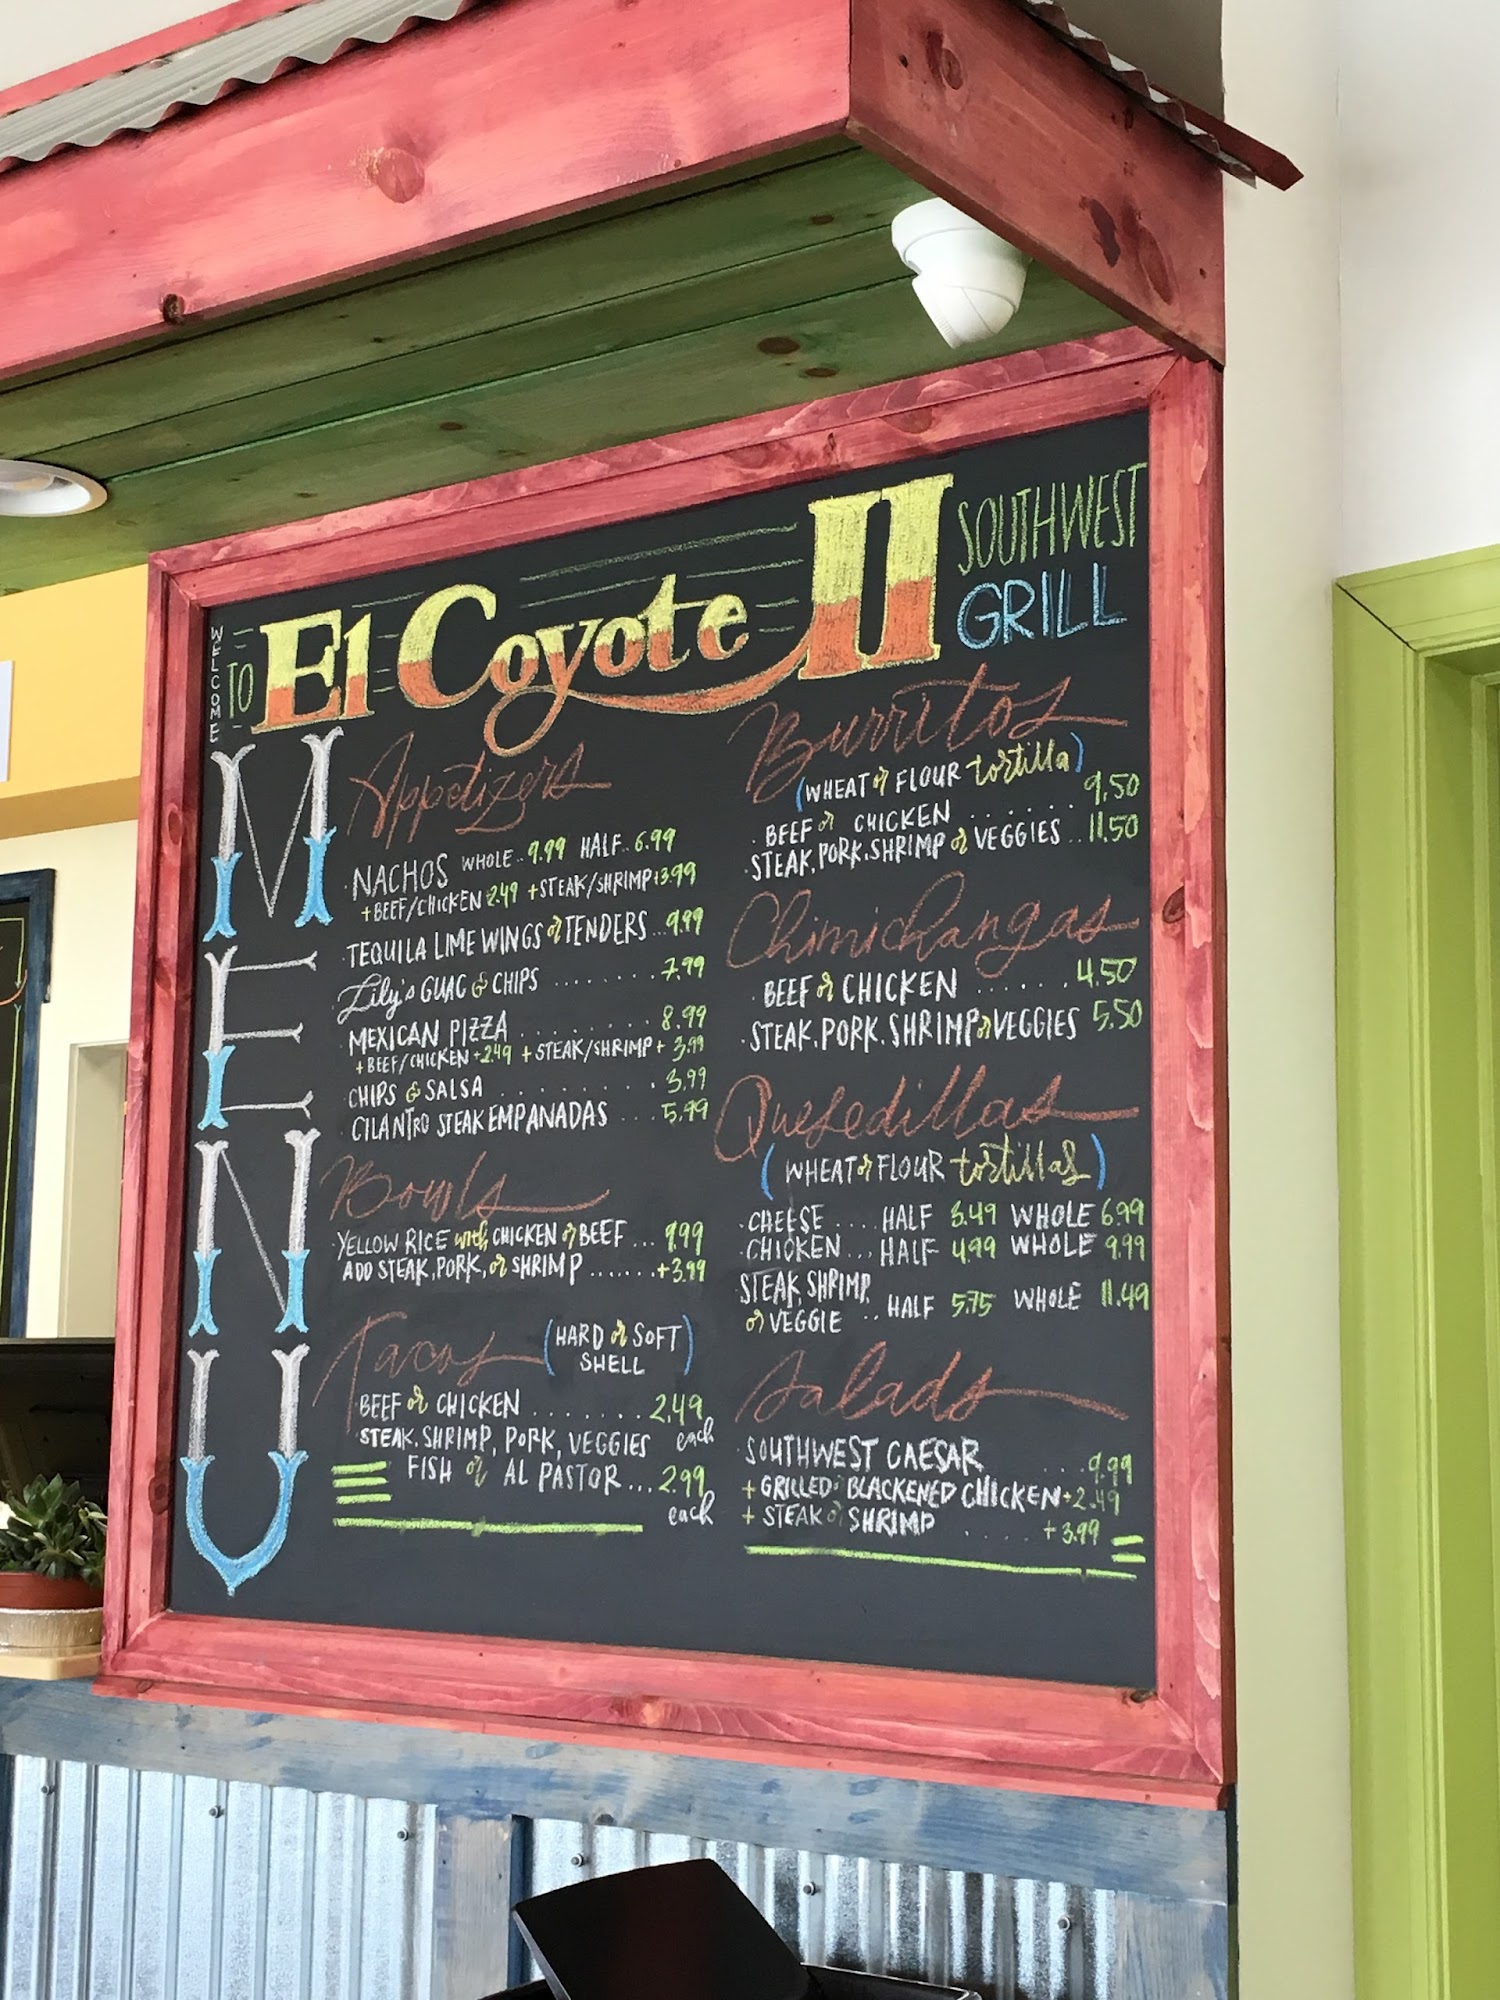 WELCOME
TO El Coyote II SOUTHWEST GRILL
MENU
Appetizers
· NACHOS WHOLE .. 9.99 HALF .. 6.99
+ BEEF/CHICKEN 2.49 + STEAK/SHRIMP + 3.99
· TEQUILA LIME WINGS or TENDERS ... 9.99
· Lily's GUAC & CHIPS ........ 7.99
· MEXICAN PIZZA ........ 8.99
+ BEEF/CHICKEN + 2.49 + STEAK/SHRIMP + 3.99
· CHIPS & SALSA ........ 3.99
· CILANTRO STEAK EMPANADAS ... 5.99
Bowls
· YELLOW RICE with CHICKEN or BEEF ... 9.99
ADD STEAK, PORK, or SHRIMP ....... + 3.99
Tacos (HARD or SOFT SHELL)
BEEF or CHICKEN ....... 2.49 each
· STEAK, SHRIMP, PORK, VEGGIES
FISH or AL PASTOR ... 2.99 each
Burritos
(WHEAT or FLOUR tortilla)
· BEEF or CHICKEN ....... 9.50
· STEAK, PORK, SHRIMP or VEGGIES .. 11.50
Chimichangas
· BEEF or CHICKEN ...... 4.50
· STEAK, PORK, SHRIMP or VEGGIES 5.50
Quesedillas
(WHEAT or FLOUR tortillas)
· CHEESE .... HALF 3.49 WHOLE 6.99
· CHICKEN ... HALF 4.99 WHOLE 9.99
STEAK, SHRIMP,
or VEGGIE .. HALF 5.75 WHOLE 11.49
Salads
· SOUTHWEST CAESAR ..... 9.99
+ GRILLED or BLACKENED CHICKEN + 2.49
+ STEAK or SHRIMP ..... + 3.99